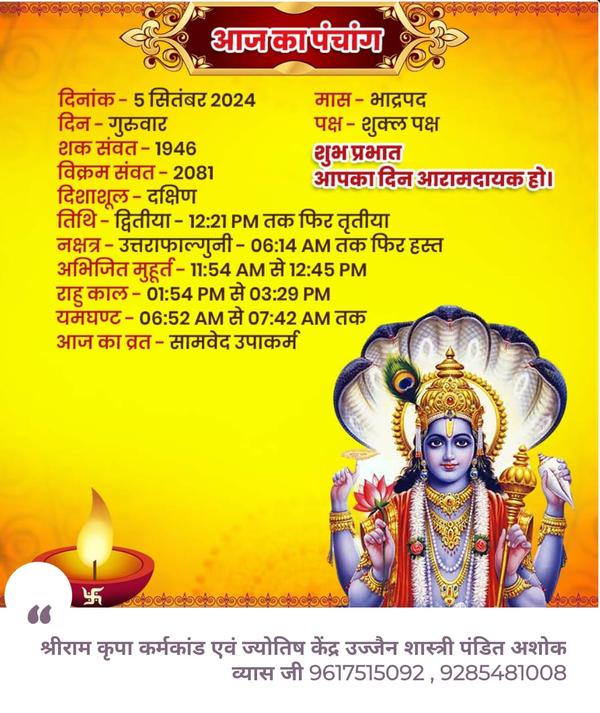 आज का पंचांग
दिनांक - 5 सितंबर 2024
दिन - गुरुवार
शक संवत - 1946
विक्रम संवत - 2081
दिशाशूल - दक्षिण
मास - भाद्रपद
पक्ष - शुक्ल पक्ष
शुभ प्रभात
आपका दिन आरामदायक हो।
तिथि - द्वितीया - 12:21 PM तक फिर तृतीया
नक्षत्र - उत्तराफाल्गुनी - 06:14 AM तक फिर हस्त
अभिजित मुहूर्त - 11:54 AM से 12:45 PM
राहु काल - 01:54 PM से 03:29 PM
यमघण्ट - 06:52 AM से 07:42 AM तक
आज का व्रत - सामवेद उपाकर्म
श्रीराम कृपा कर्मकांड एवं ज्योतिष केंद्र उज्जैन शास्त्री पंडित अशोक
व्यास जी 9617515092 , 9285481008